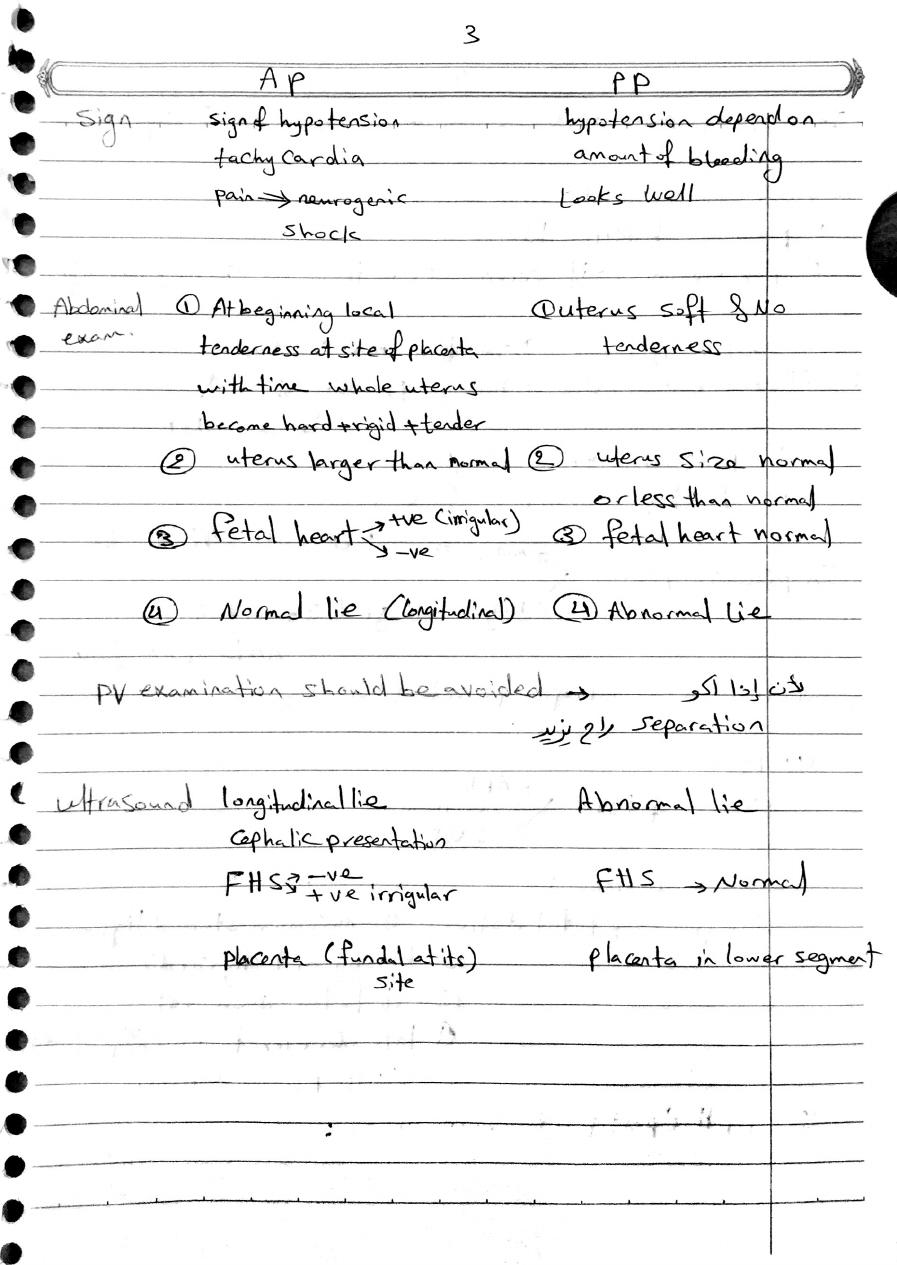 3
AP PP
Sign sign of hypotension hypotension depend on
tachy cardia amount of bleeding
pain → neurogenic Looks well
shock
Abdominal ① At beginning local ① uterus soft & No
exam. tenderness at site of placenta tenderness
with time whole uterus
become hard + rigid + tender
② uterus larger than normal ② uterus size normal
or less than normal
③ fetal heart → +ve (irrigular) ③ fetal heart normal
↘ -ve
④ Normal lie (longitudinal) ④ Abnormal lie
PV examination should be avoided → لأن إذا اكو
separation راح يزيد
ultrasound longitudinal lie Abnormal lie
Cephalic presentation
FHS → -ve FHS → Normal
↘ +ve irrigular
placenta (fundal at its) placenta in lower segment
site